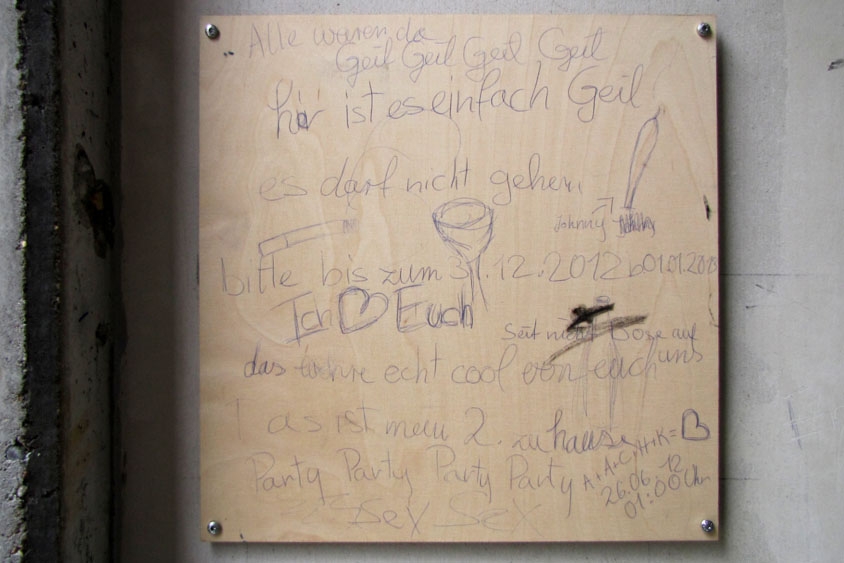 Alle waren da
Geil Geil Geil Geil
hir ist es einfach Geil
es darf nicht gehen
Johnny
bitte bis zum 31.12.2012 b01.01.2013
Ich ♡ Euch
Seit nicht Böse auf uns
das wehre echt cool von euch
Das ist mein 2. zuhause
A+A+C+H+K=♡
26.06.12
01:00 Uhr
Party Party Party Party
Sex Sex